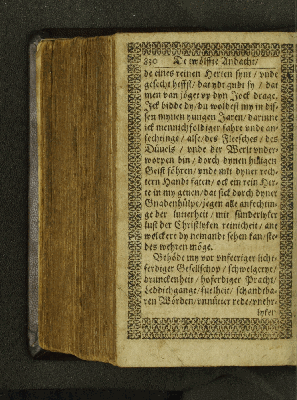 830 De twölfte Andacht/
de eines reinen Herten synt / vnde
gesecht heffst / dat ydt gudt sy / dat
men van jöget vp dyn Jock drage.
Jck bidde dy / du woldest my in dis-
sen mynen jungen Jaren / darinne
ick mennichfoldiger fahre vnde an-
fechtinge / alse / des Flesches / des
Düuels / vnde der Werlt vnder-
worpen bin / dorch dynen hilligen
Geist föhren / vnde mit dyner rech-
tern Handt faten / ock ein rein Her-
te in my geuen / dat sick dorch dyner
Gnadenhülpe / jegen alle anfechtin-
ge der / mit sünderlyker
lust der Christlyken reinicheit / ane
welckere dy nemandt sehen kan / ste-
des wehren möge.
Behöde my vor vnfertiger licht-
ferdiger Geselschop / schwelgerye /
drunckenheit / hoferdiger Pracht /
Leddichgange / fuelheit / schandtba-
ren Wörden / vnnütter rede / vnehr-
lyker